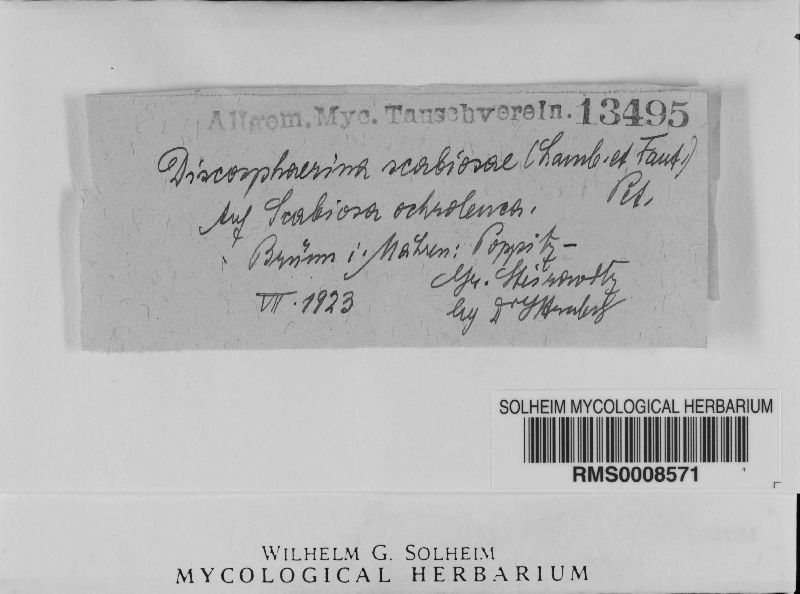 Allgem. Myc. Tauschverein. 13495
Discosphaerina scabiosae (Lamb. et Faut.)
Pet.
Auf Scabiosa ochroleuca.
Brünn i. Mähren: Poppitz –
Gr. Steurowitz
VII. 1923
leg Dr Hruby
SOLHEIM MYCOLOGICAL HERBARIUM
RMS0008571
WILHELM G. SOLHEIM
MYCOLOGICAL HERBARIUM